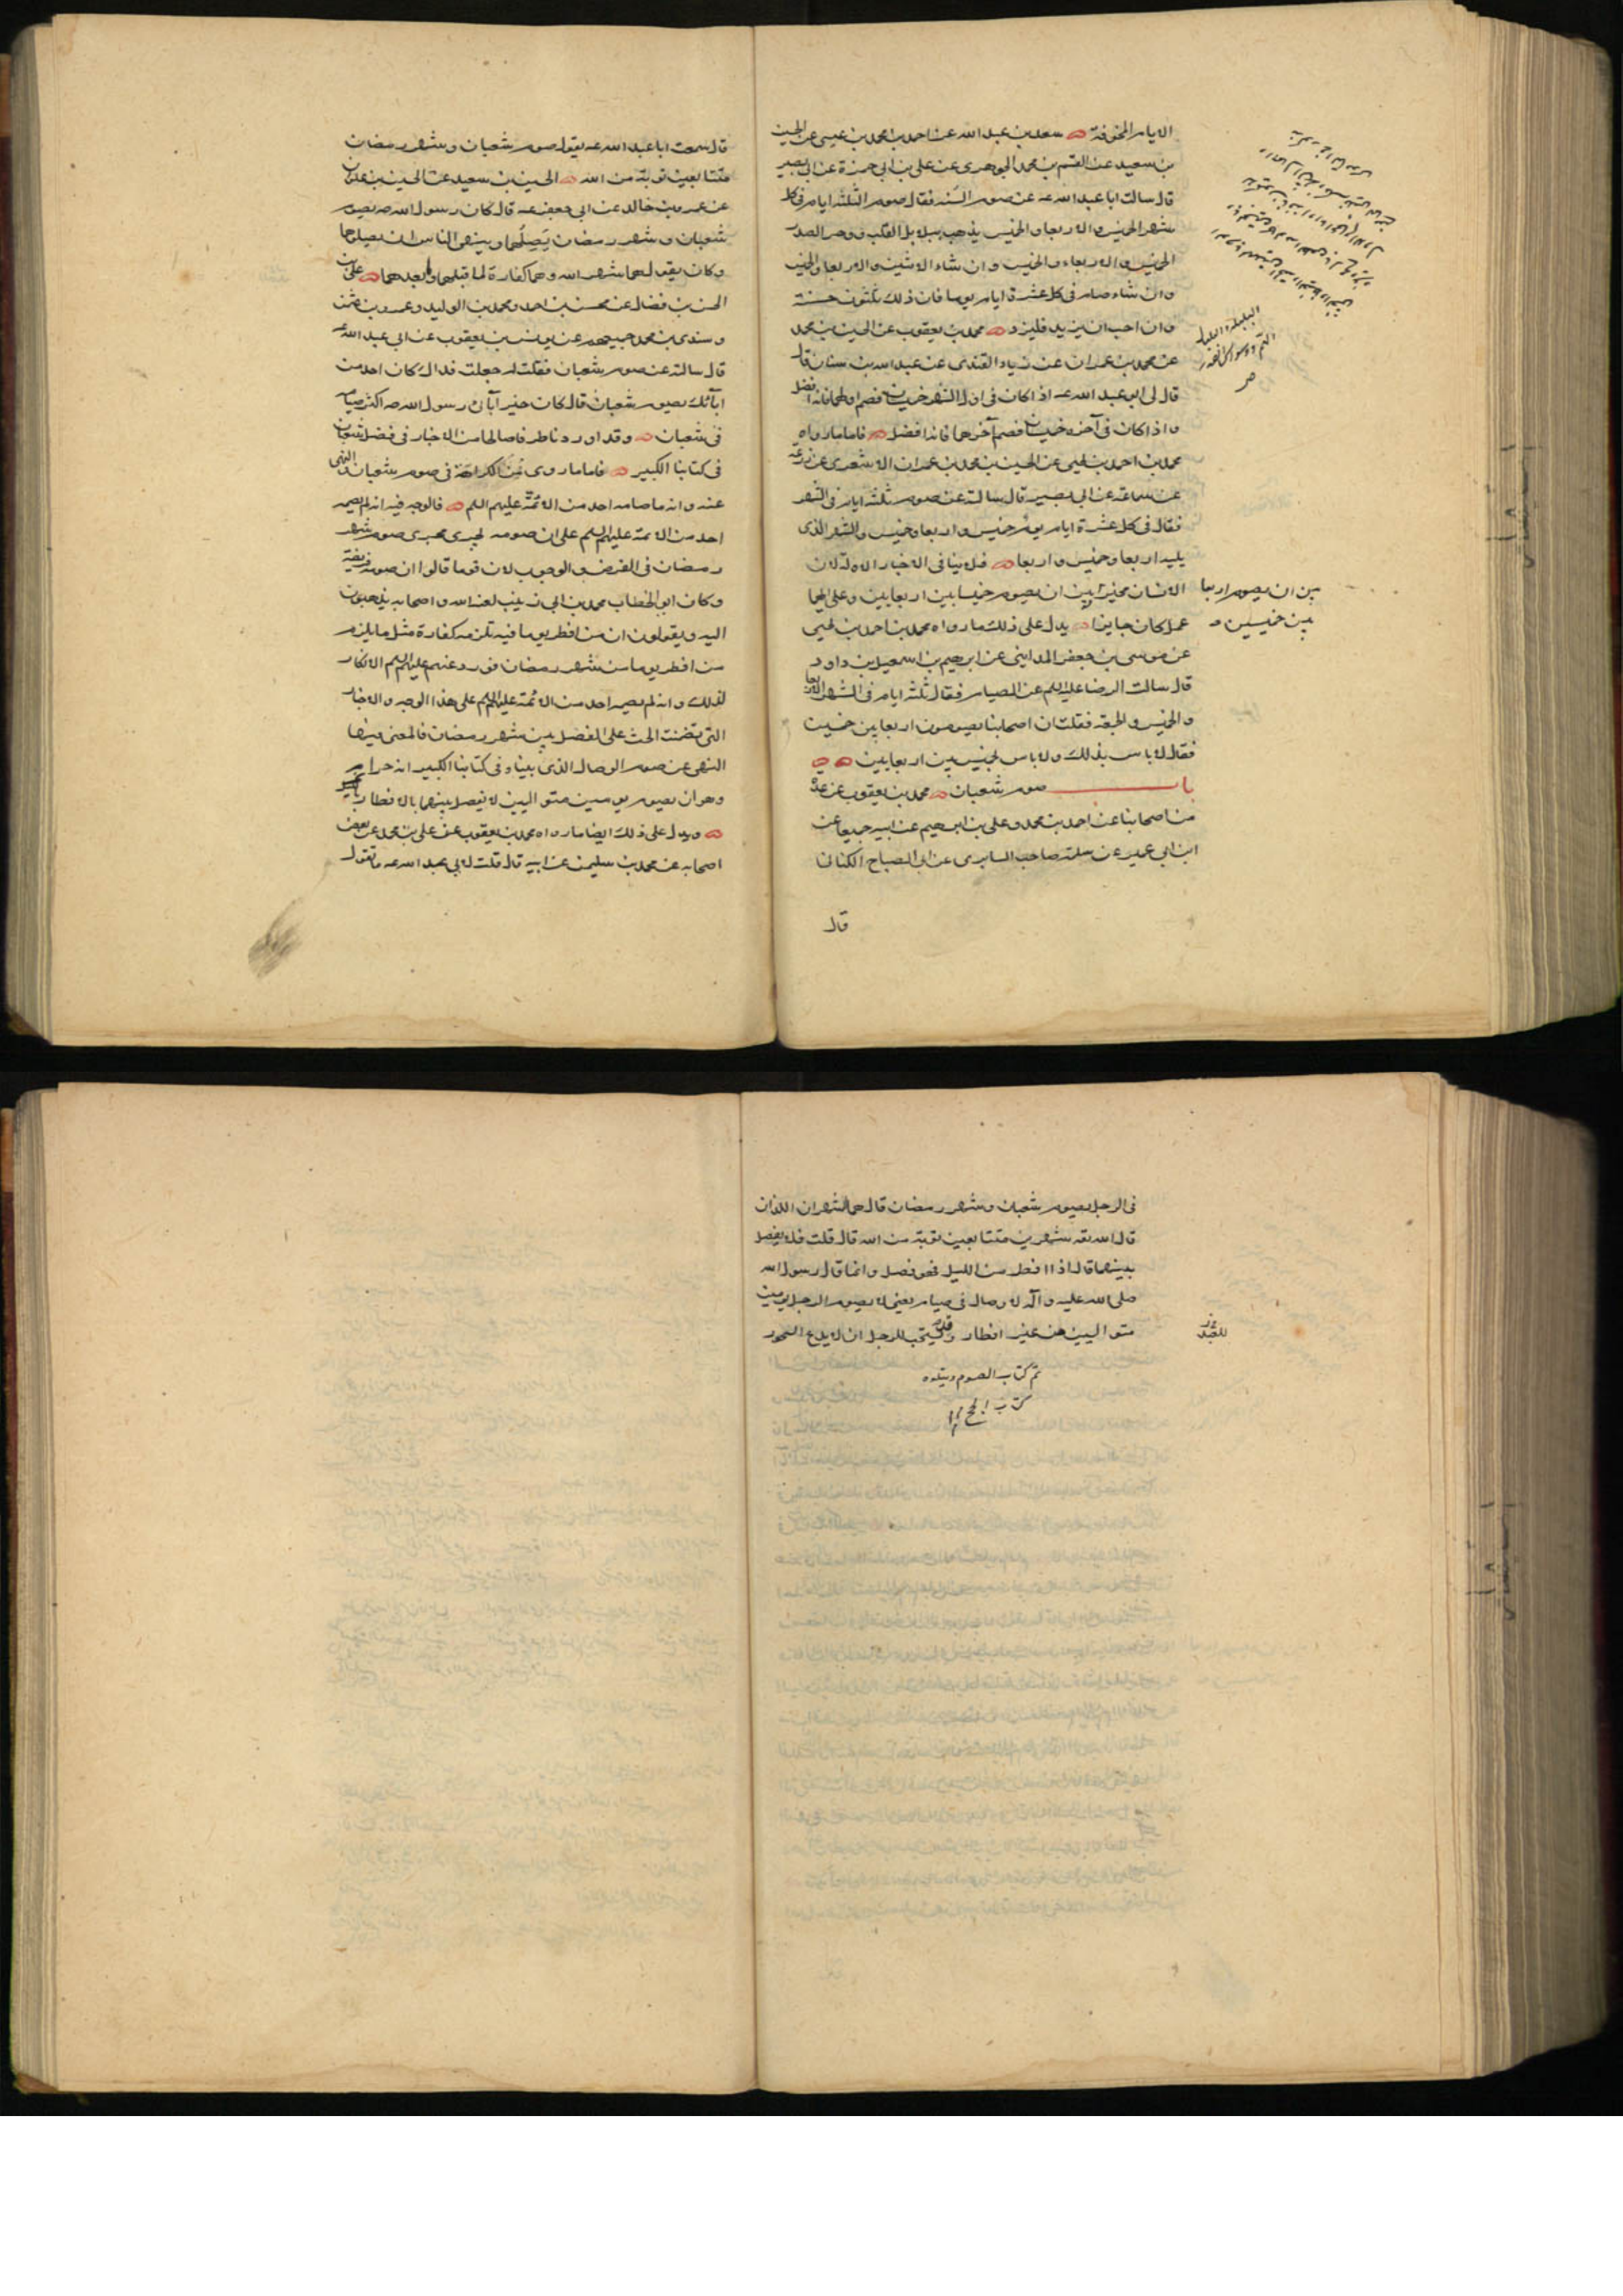 الايام المخوفة سعد بن عبد الله عن احمد بن محمد بن عيسى عن الحسين
بن سعيد عن القسم بن محمد الجوهرى عن على بن ابى حمزة عن ابى بصير
قال سالت ابا عبد الله عه عن صوم السنه فقال صوم الثلثه ايام فى كل
شهر الخميس والاربعا والخميس يذهب ببلابل القلب ووحر الصدر
الخميس والاربعاء والخميس وان شاء الاثنين والاربعا والخميس
وان شاء صام فى كل عشرة ايام يوما فان ذلك ثلثون حسنة
وان احب ان يزيد فليزد محمد بن يعقوب عن الحسين بن محمد
عن محمد بن عمران عن زياد القندى عن عبد الله بن سنان قال
قال لى ابو عبد الله عه اذا كان فى اول الشهر خميسان فصم اولهما فانه افضل
واذا كان فى آخره خميسان فصم آخرهما فانه افضل فاما ما رواه
محمد بن احمد بن يحيى عن الحسين بن محمد بن عمران الاشعرى عن زرعه
عن سماعة عن ابى بصير قال سالته عن صوم ثلثه ايام فى الشهر
فقال فى كل عشرة ايام يوم خميس واربعا وخميس والشهر الذى
يليه اربعا وخميس واربعا فلا ينافى الاخبار الاولة لان
الانسان مخير بين ان يصوم خميسا بين اربعايين وعلى ايهما
بين ان يصوم اربعا
بين خميسين و
عمل كان جايزا يدل على ذلك ما رواه محمد بن احمد بن يحيى
عن موسى بن جعفر المداينى عن ابرهيم بن اسمعيل بن داود
قال سالت الرضا عليه السلم عن الصيام فقال ثلثه ايام فى الشهر الاربعا
والخميس والجمعة فقلت ان اصحابنا يصومون اربعا بين خميسين
فقال لا باس بذلك ولا باس بخميس بين اربعايين
باب صوم شعبان محمد بن يعقوب عن عدة
من اصحابنا عن احمد بن محمد وعلى بن ابرهيم عن ابيه جميعا عن
ابن ابى عمير عن سلمة صاحب السابرى عن ابى الصباح الكنانى
قال
قال سمعت ابا عبد الله عه يقول صوم شعبان وشهر رمضان
متتابعين توبة من الله الحسين بن سعيد عن الحسين بن علوان
عن عمرو بن خالد عن ابى جعفر عه قال كان رسول الله صه يصوم
شعبان وشهر رمضان يصلهما وينهى الناس ان يصلوهما
وكان يقول هما شهر الله وهما كفارة لما قبلهما ولما بعدهما على بن
الحسن بن فضال عن محسن بن احمد ومحمد بن الوليد وعمرو بن عثمن
وسندى بن محمد جميعهم عن يونس بن يعقوب عن ابى عبد الله عه
قال سالته عن صوم شعبان فقلت له جعلت فداك كان احد من
ابائك يصوم شعبان قال كان خير آبائى رسول الله صه اكثر صيامه
فى شعبان وقد اوردنا طرفا صالحا من الاخبار فى فضل شعبان
فى كتابنا الكبير فاما ما روى من الكراهة فى صوم شعبان والنهى
عنه وانه ما صامه احد من الائمة عليهم السلم فالوجه فيه انه لم يصمه
احد من الائمة عليهم السلم على ان صومه يجرى مجرى صوم شهر
رمضان فى الفرض والوجوب لان قوما قالوا ان صومه فريضة
وكان ابو الخطاب محمد بن ابى زينب لعنه الله واصحابه يذهبون
اليه ويقولون ان من افطر يوما فيه تلزمه كفارة مثل ما يلزم
من افطر يوما من شهر رمضان فورد عنهم عليهم السلم الانكار
لذلك وانه لم يصمه احد من الائمة عليهم السلم على هذا الوجه والاخبار
التى تضمنت الحث على الفصل بين شهر رمضان فالمعنى فيها
النهى عن صوم الوصال الذى بينا فى كتابنا الكبير انه حرام
وهو ان يصوم يومين متواليين لا يفصل بينهما بالافطار
ويدل على ذلك ايضا ما رواه محمد بن يعقوب عن على بن محمد عن بعض
اصحابه عن محمد بن سليمن عن ابيه قال قلت لابى عبد الله عه ما تقول
فى الرجل يصوم شعبان وشهر رمضان قال هما الشهران اللذان
قال الله تعه شهرين متتابعين توبة من الله قال قلت فلا يفصل
بينهما قال اذا افطر من الليل فهو فصل وانما قال رسول الله
صلى الله عليه وآله لا وصال فى صيام يعنى لا يصوم الرجل يومين
متواليين من غير افطار وقد يستحب للرجل ان لا يدع السحور
تم كتاب الصوم ويتلوه
كتاب الحج